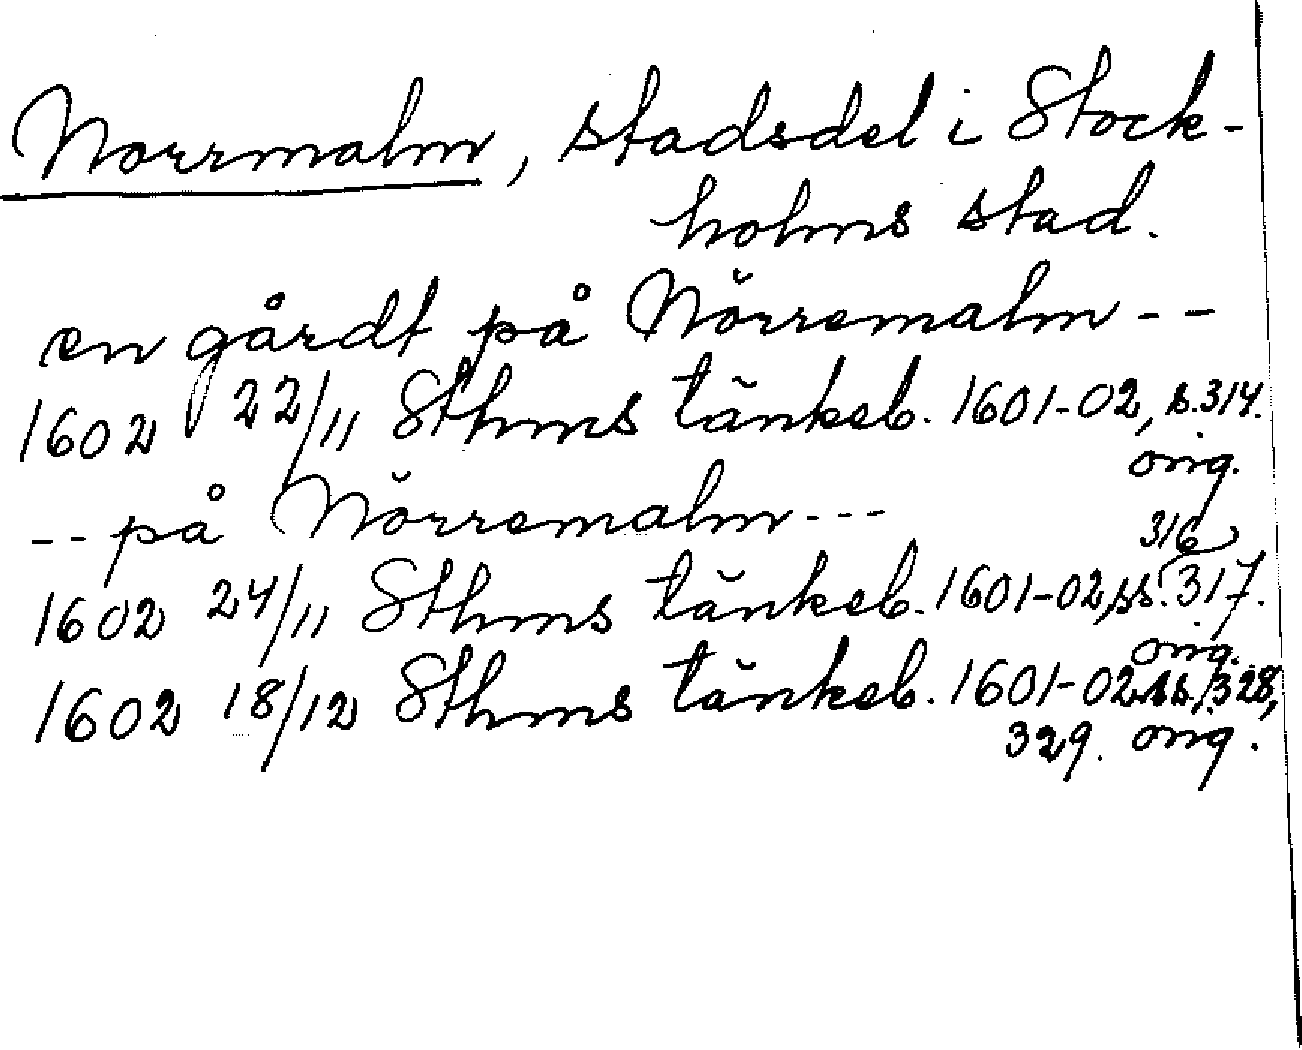 Norrmalm, stadsdel i Stock-
holms stad.
en gårdt på Nörremalm --
1602 22/11 Sthms tänkeb. 1601-02, s. 314.
orig.
-- på Nörremalm ---
316,
1602 24/11 Sthms tänkeb. 1601-02, ss. 317.
orig.
1602 18/12 Sthms tänkeb. 1601-02 ss. 328,
329. orig.